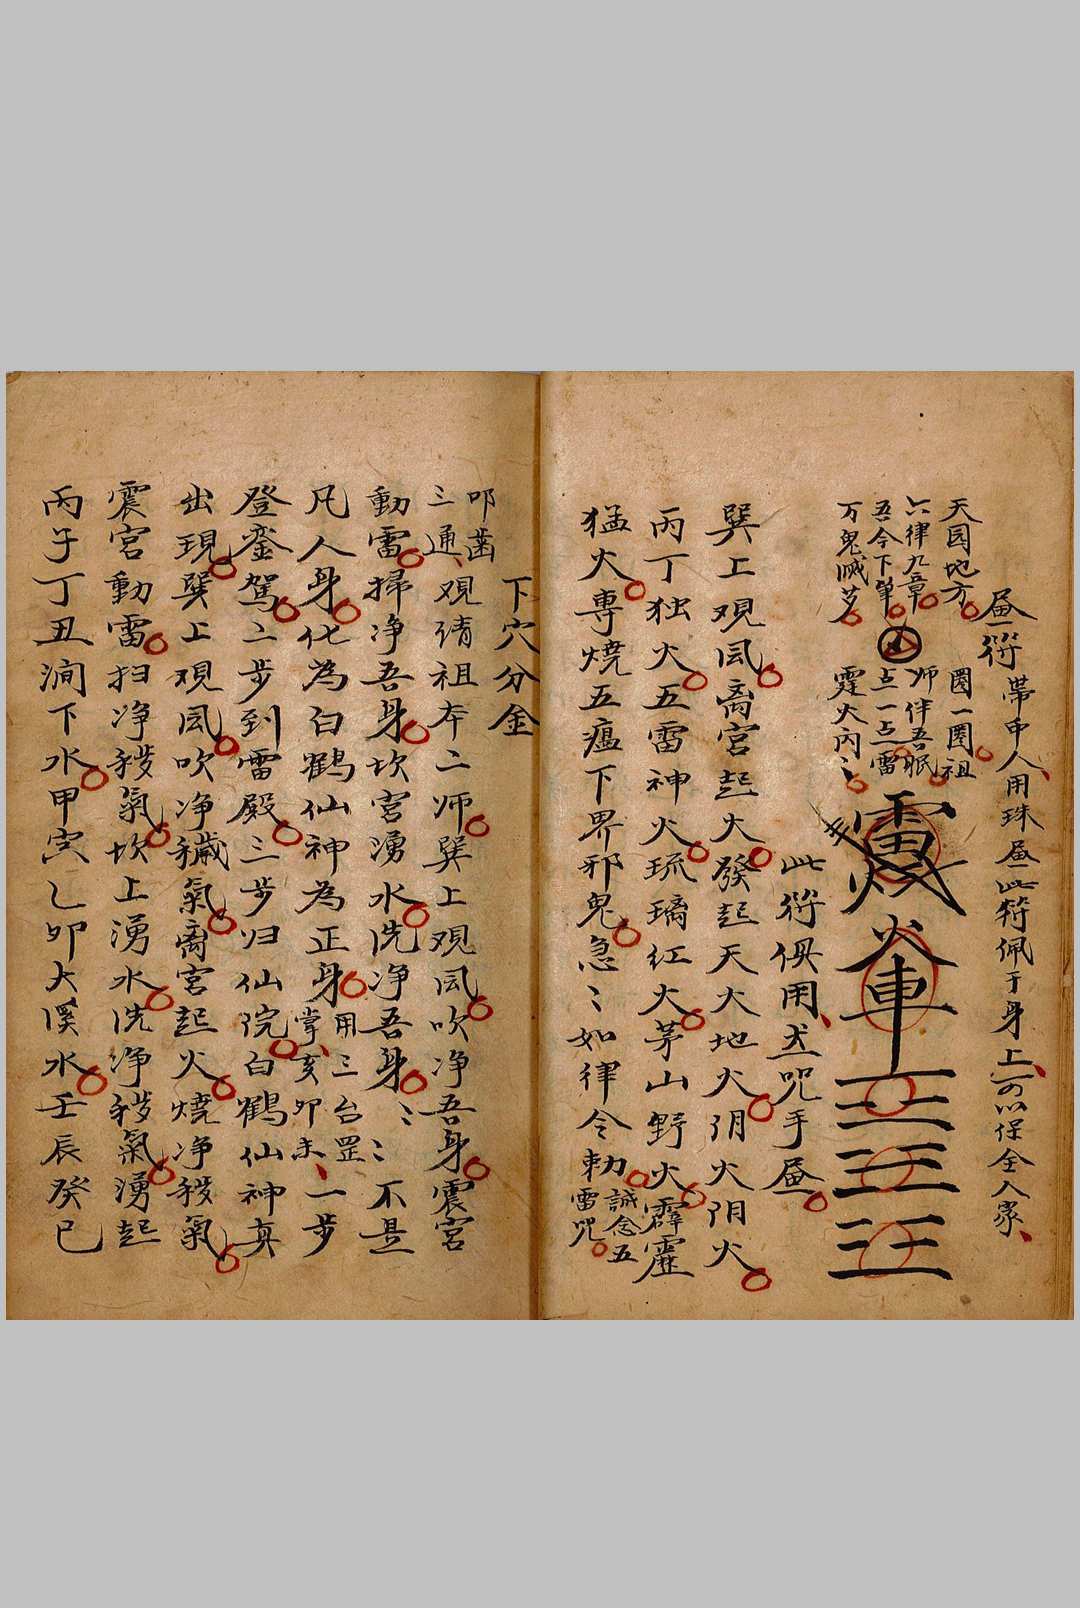 画一符帶申人用珠画此符佩于身上可以保全入家
天圆地方
六律九章
吾今下筆
万鬼滅芗
圈一圈祖
师伴吾眠
点一点雷
霆火丙〻
此符俱用
咒手画
巽上观風离宫起火發起天火地火阴火阴火
丙丁独火五雷神火琉璃红火茅山野火霹靂
猛火專燒五瘟下界邪鬼急〻如律令勅
誠念五
雷咒
下穴分金
叩齒
三通观请祖本二师巽上观風吹净吾身震宫
動雷掃净吾身坎宫湧水洗净吾身〻〻不是
凡人身化為白鶴仙神為正身
用三台罡
掌亥卯未
一步
登銮駕二步到雷殿三步归仙院白鶴仙神真
出現巽上观風吹净穢氣离宫起火燒净秽氣
震宫動雷扫净秽氣坎上湧水洗净秽氣湧起
丙子丁丑澗下水甲寅乙卯大溪水壬辰癸巳